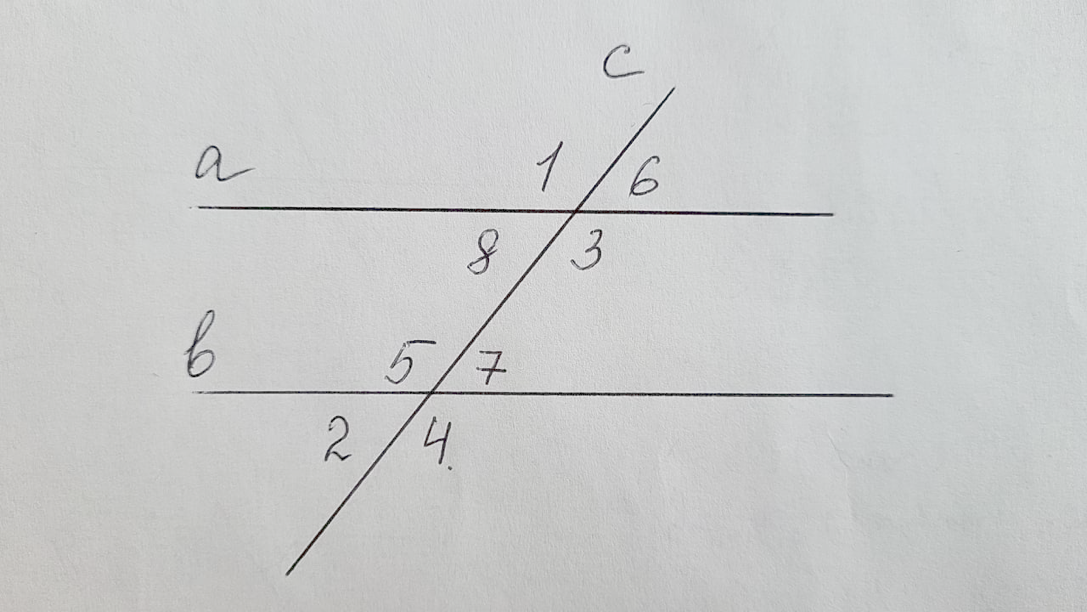 c
a
1 6
8 3
b
5 7
2 4.